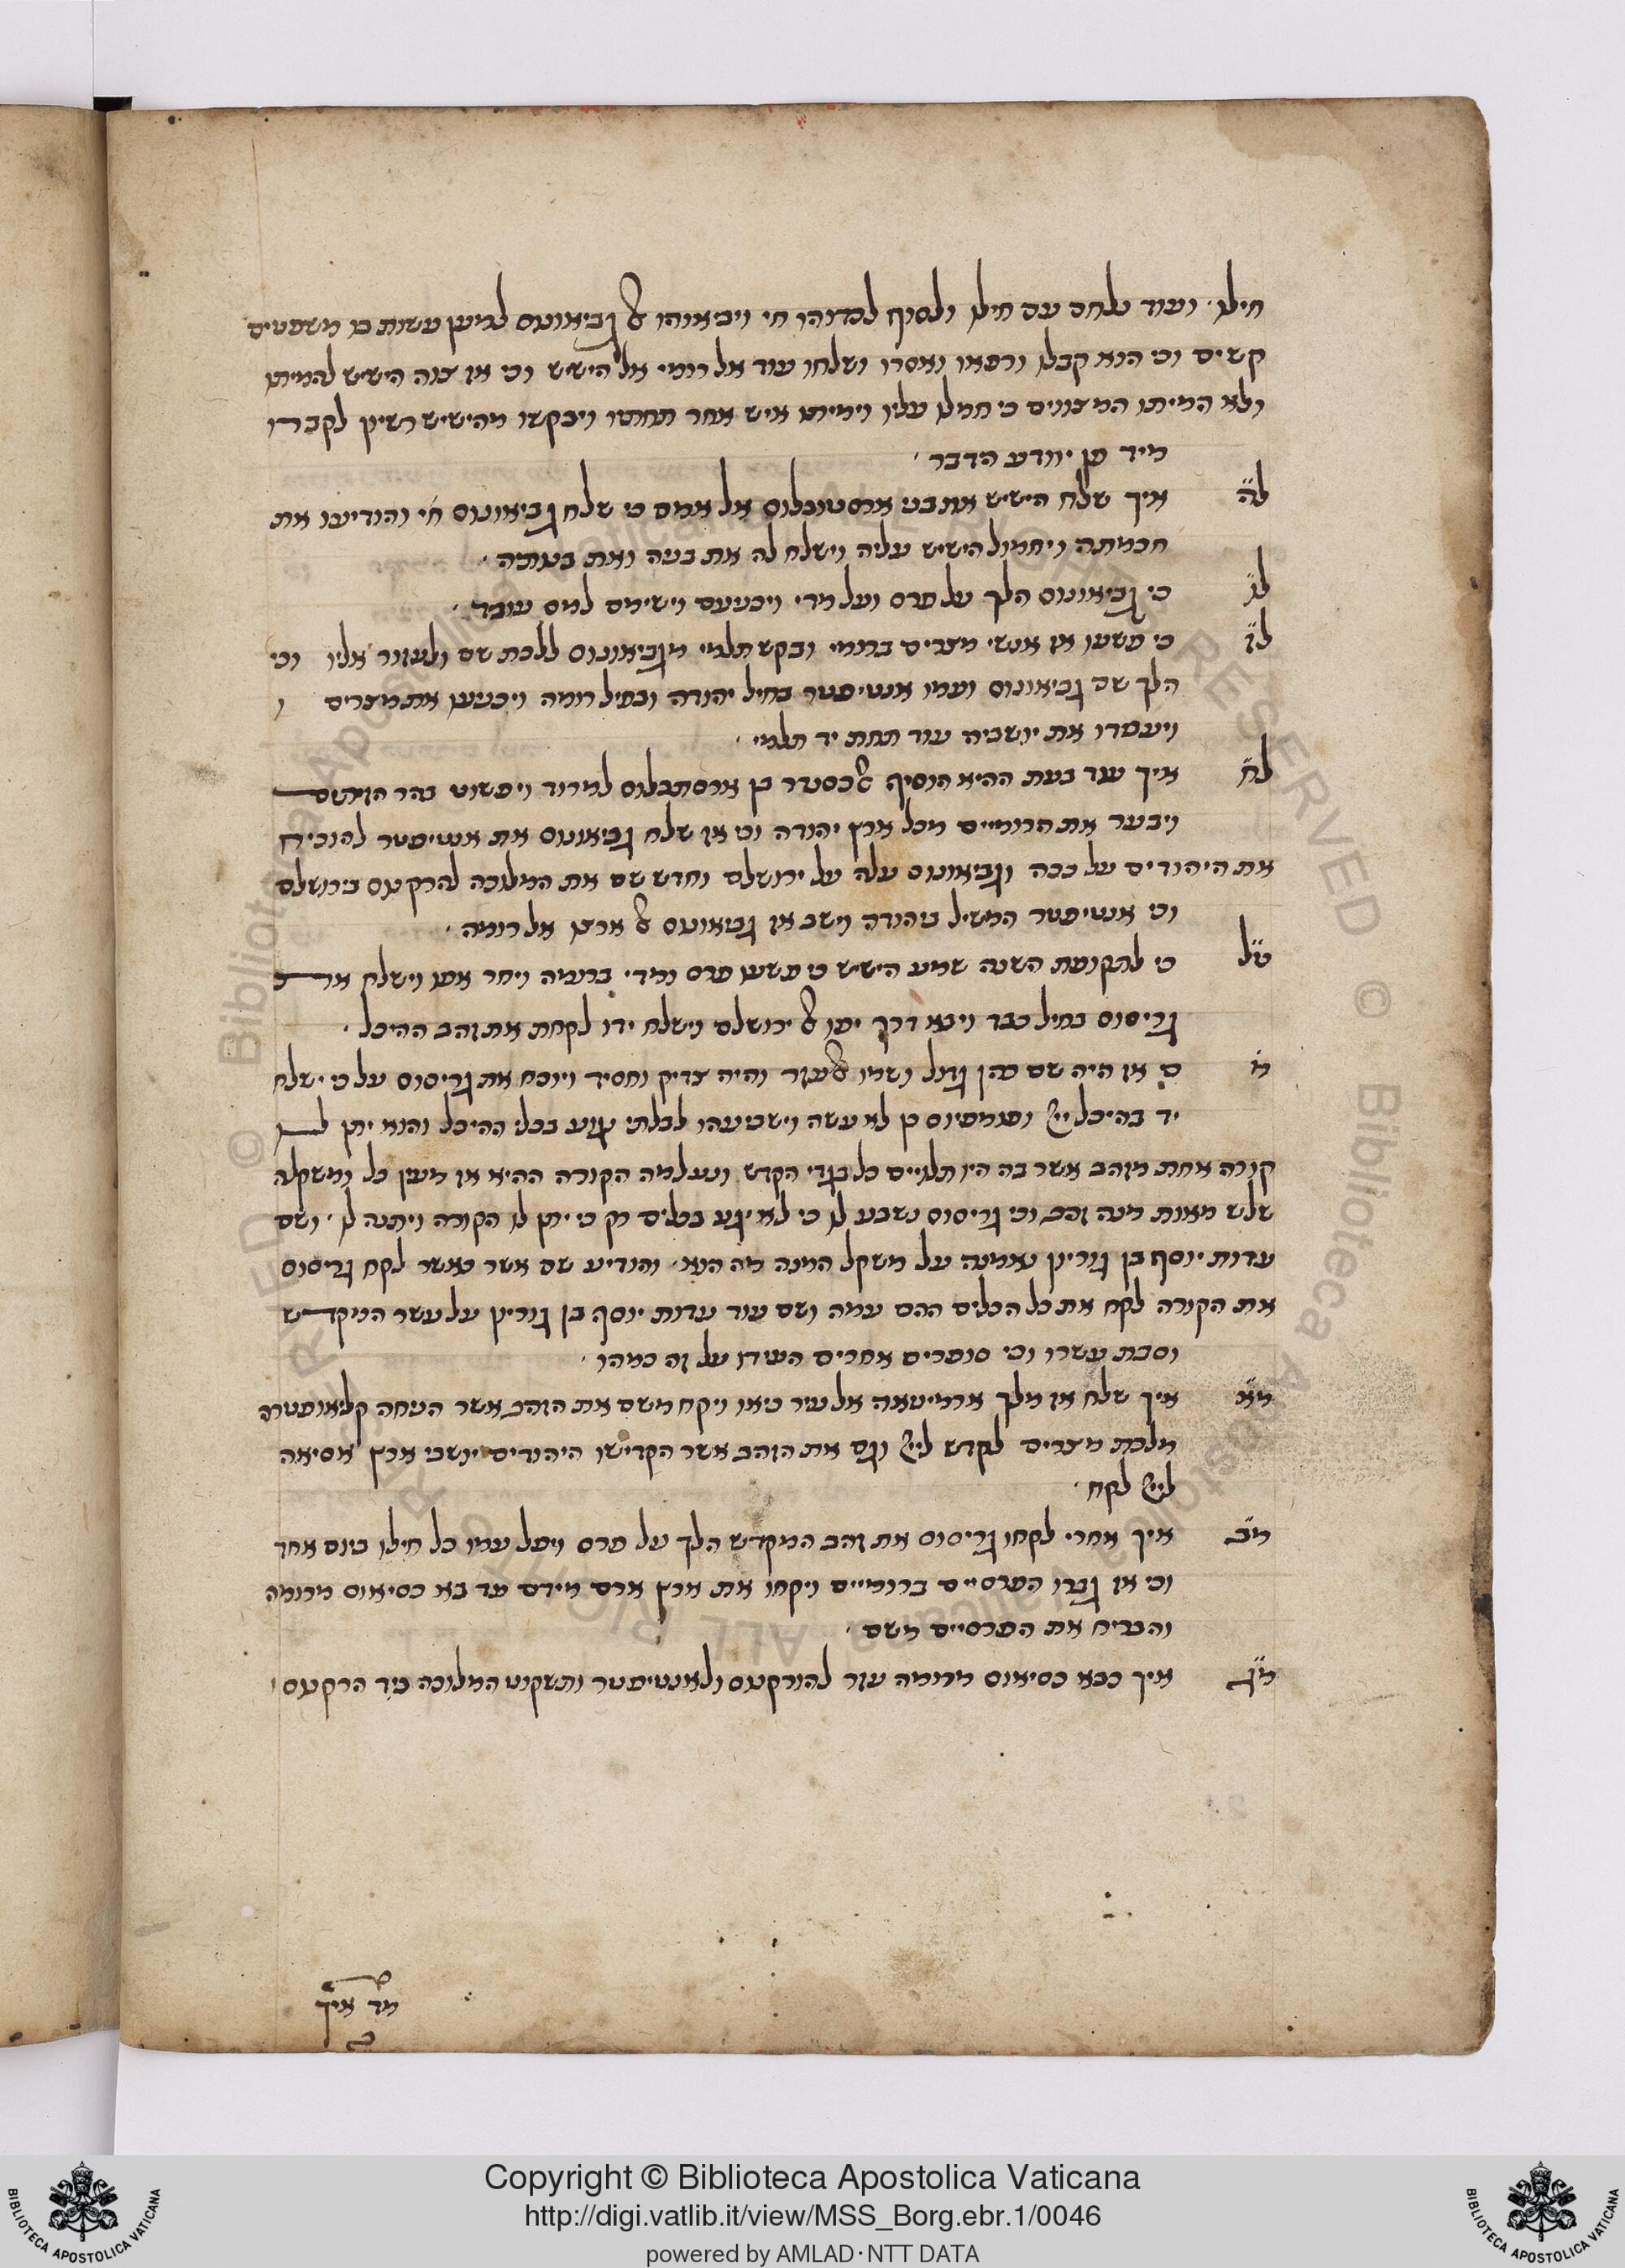 חילו ועוד נלחם עם חילו ולסוף לכדוהו חי ויביאוהו אל גביאונוס למען עשות בו משפטים
קשים וכי הוא קבלו ורפאו ואסרו ושלחו עוד אל רומי אל הישיש וכי אז צוה הישיש להמיתו
ולא המיתו המצווים כי חמלו עליו וימיתו איש אחר תחתיו ויבקשו מהישיש רשיון לקברו
מיד פן יוודע הדבר
לה איך שלח הישיש את בני ארסטובלוס אל אמם כי שלח גביאונוס והודיעו את
חכמתה ויחמול הישיש עליה וישלח לה את בניה ואת בנותיה
לו כי גביאונוס הלך על פרס ועל מדי ויכניעם וישימם למס עובד
לז כי פשעו אז אנשי מצרים ברומי ובקש תלמי מגביאונוס ללכת שם ולעזור אליו וכי
הלך שם גביאונוס ועמו אנטיפטר בחיל יהודה ובחיל רומה ויכניעו את מצרים
ויעמדו את יושביה עוד תחת יד תלמי
לח איך עוד בעת ההיא הוסיף אלכסנדר בן ארסתבלוס למרוד ויפשוט בהר
ויבער את הרומיים מכל ארץ יהודה וכי אז שלח גביאונוס את אנטיפטר להוכיח
את היהודים על ככה וגביאונוס עלה על ירושלם וחדש שם את המלוכה להרקנוס בירושלם
וכי אנטיפטר המשיל ביהודה וישב אז גביאונוס אל ארצו אל רומה
טל כי לתקופת השנה שמע הישיש כי פשעו פרס ומדי ברומיה ויחר אפו וישלח את
גריסוס בחיל כבד ויבא דרך יפו אל ירושלם וישלח ידו לקחת את זהב ההיכל
מ כי אז היה שם כהן גדול ושמו אלעזר והיה צדיק וחסיד ויוכח את גריסוס על כי ישלח
יד בהיכל ייי ופומפיוס כן לא עשה וישביעהו לבלתי נגוע בכלי ההיכל והוא יתן לו
קורה אחת מזהב אשר בה היו תלויים כל בגדי הקדש ונעלמה הקורה ההיא אז מעין כל ומשקלה
שלש מאות מנה זהב וכי גריסוס נשבע לו כי לא יגע בכלים רק כי יתן לו הקורה ויתנה לו ושם
עדות יוסף בן גוריון נאמנה על משקל המנה מה הוא והודיע שם אשר כאשר לקח גריסוס
את הקורה לקח את כל הכלים ההם עמה ושם עוד עדות יוסף בן גוריון על עשר המקדש
וסבת עשרו וכי סופרים אחרים העידו על זה כמהו
מא איך שלח אז מלך אל עיר ויקח משם את הזהב אשר הניחה קליאופטרה
מלכת מצרים לקדש לייי וגם את הזהב אשר הקדישו היהודים יושבי ארץ אסיאה
לייי לקח
מב איך אחרי לקחו גריסוס את זהב המקדש הלך על פרס ויפל עמו כל חילו ביום אחד
וכי אז גברו הפרסיים ברומיים ויקחו את ארץ ארם מידם עד בא כסיאוס מרומה
והבריח את הפרסיים משם
מג איך כבא כסיאוס מרומה עזר להורקנוס ולאנטיפטר ותשקוט המלוכה ביד הרקנוס
מד איך
Copyright © Biblioteca Apostolica Vaticana
http://digi.vatlib.it/view/MSS_Borg.ebr.1/0046
powered by AMLAD·NTT DATA